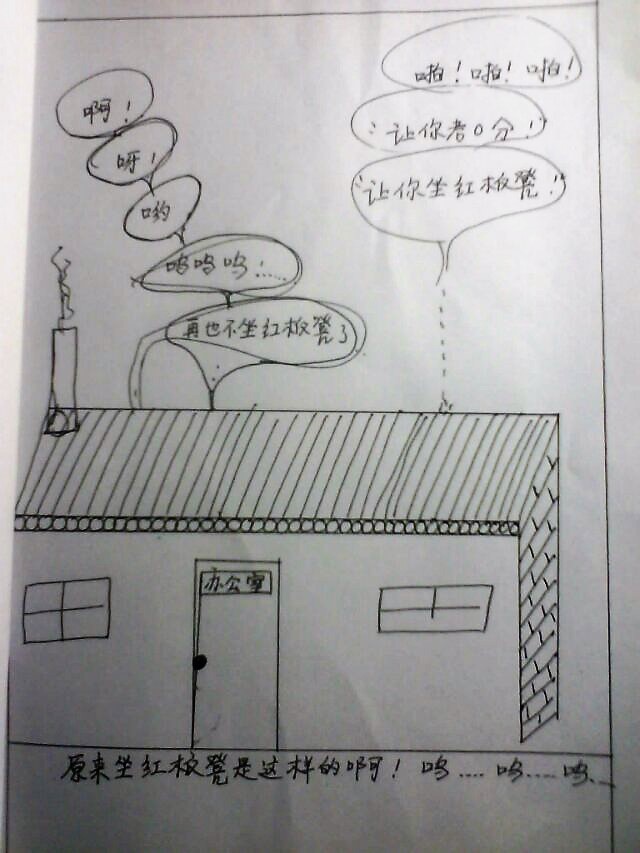 啪！啪！啪！
让你考0分！
让你坐红板凳！
啊！
呀！
哟
呜呜呜……
再也不坐红板凳了
办公室
原来坐红板凳是这样的啊！呜……呜……呜……